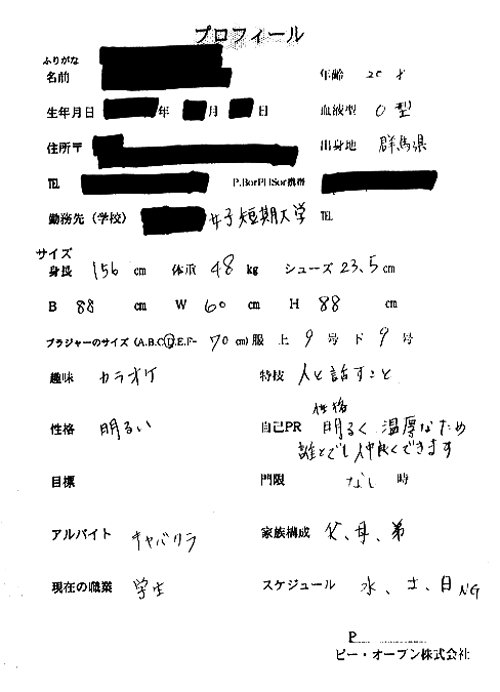 プロフィール
ふりがな
名前 年齢 20 才
生年月日 年 月 日 血液型 O 型
住所〒 出身地 群馬県
TEL P.BorPHSor携帯
勤務先（学校） 女子短期大学 TEL
サイズ
身長 156 cm 体重 48 kg シューズ 23,5 cm
B 88 cm W 60 cm H 88 cm
ブラジャーのサイズ (A.B.C.D.E.F- 70 cm) 服 上 9 号 下 9 号
趣味 カラオケ 特技 人と話すこと
性格 明るい 自己PR 性格 明るく 温厚なため
誰とでも仲良くできます
目標 門限 なし 時
アルバイト キャバクラ 家族構成 父、母、弟
現在の職業 学生 スケジュール 水、土、日 NG
P
ピー・オープン株式会社